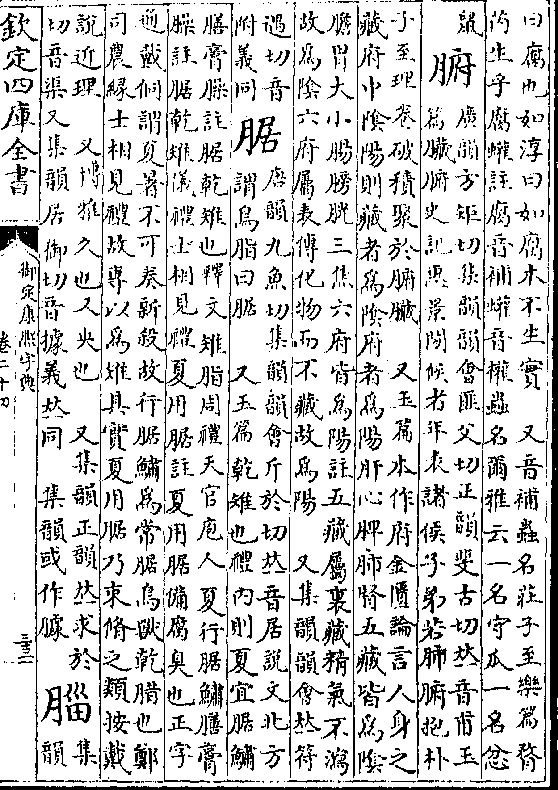 曰腐也如淳曰如腐木不生實　又音補蟲名莊子至樂篇瞀
芮生乎腐蠸註腐音補蠸音權蟲名爾雅云一名守瓜一名忿
䑕　腑　廣韻方矩切集韻韻會匪父切正韻斐古切𠀤音甫玉
篇臟腑史記惠景間侯者年表諸侯子弟若肺腑抱朴
子至理卷破積聚於腑臟　又玉篇本作府金匱論言人身之
藏府中陰陽則藏者為陰府者為陽肝心脾肺腎五藏皆為陰
膽胃大小腸膀胱三焦六府皆為陽註五藏屬裏藏精氣不瀉
故為陰六府屬表傳化物而不藏故為陽　又集韻韻會𠀤符
遇切音附義同　腒　唐韻九魚切集韻韻會斤於切𠀤音居說文北方
謂鳥腊曰腒　又玉篇乾雉也禮內則夏宜腒鱐
膳膏臊註腒乾雉也釋文雉腊周禮天官庖人　夏行腒鱐膳膏
臊註腒乾雉儀禮士相見禮夏用腒註夏用腒備腐臭也正字
通戴侗謂夏暑不可奏新殺故行腒鱐為常腒鳥獸乾腊也鄭
司農緣士相見禮故專以為雉其實夏用腒乃束脩之類按戴
說近理　又博雅久也又央也　又集韻正韻𠀤求於
切音渠又集韻居御切音據義𠀤同　集韻或作䐤　腦　集
韻
欽定四庫全書
御定康熙字典
卷二十四